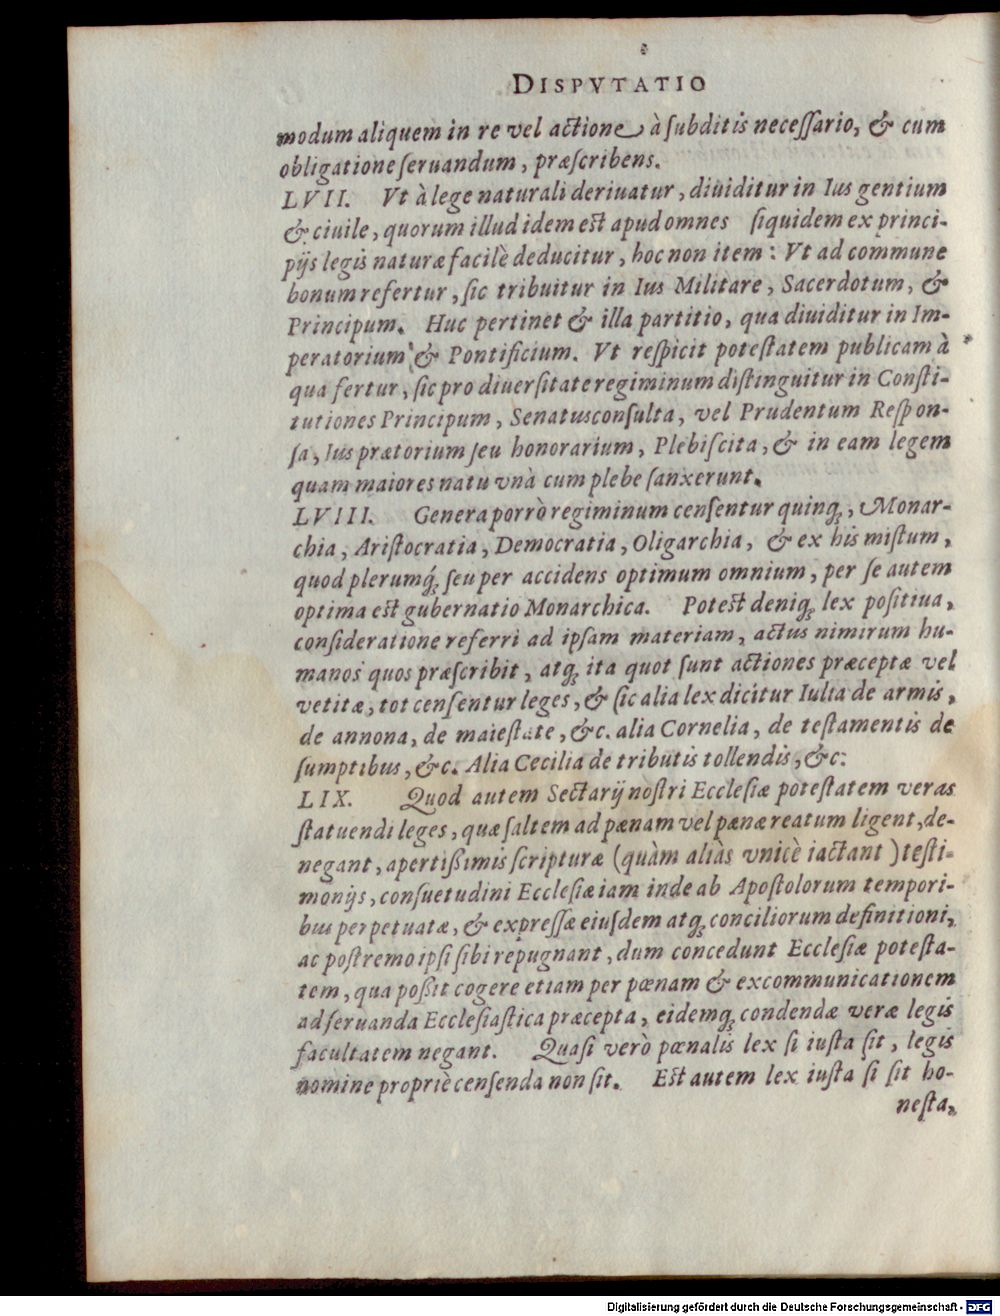 DISPVTATIO
modum aliquem in re vel actione à ſubditis neceſſario, & cum
obligatione ſeruandum, præſcribens.
LVII. Vt à lege naturali deriuatur, diuiditur in Ius gentium
& ciuile, quorum illud idem est apud omnes ſiquidem ex princi-
pijs legis naturæ facilè deducitur, hoc non item: Vt ad commune
bonum refertur, ſic tribuitur in Ius Militare, Sacerdotum, &
Principum. Huc pertinet & illa partitio, qua diuiditur in Im-
peratorium & Pontificium. Vt reſpicit poteſtatem publicam à
qua fertur, ſic pro diuerſitate regiminum diſtinguitur in Conſti-
tutiones Principum, Senatusconſulta, vel Prudentum Reſpon-
ſa, Ius prætorium ſeu honorarium, Plebiſcita, & in eam legem
quam maiores natu vnà cum plebe ſanxerunt.
LVIII. Genera porrò regiminum cenſentur quinq;, Monar-
chia, Ariſtocratia, Democratia, Oligarchia, & ex his miſtum,
quod plerumq́; ſeu per accidens optimum omnium, per ſe autem
optima est gubernatio Monarchica. Potest deniq; lex poſitiua,
conſideratione referri ad ipſam materiam, actus nimirum hu-
manos quos præſcribit, atq; ita quot ſunt actiones præceptæ vel
vetitæ, tot cenſentur leges, & ſic alia lex dicitur Iulia de armis,
de annona, de maieſtate, &c. alia Cornelia, de teſtamentis de
ſumptibus, &c. Alia Cecilia de tributis tollendis, &c.
LIX. Quod autem Sectarij noſtri Eccleſiæ poteſtatem veras
ſtatuendi leges, quæ ſaltem ad pænam vel pænæ reatum ligent, de-
negant, apertißimis ſcripturæ (quàm aliàs vnicè iactant) teſti-
monijs, conſuetudini Eccleſiæ iam inde ab Apoſtolorum tempori-
bus perpetuatæ, & expreſſæ eiuſdem atq; conciliorum definitioni,
ac poſtremo ipſi ſibi repugnant, dum concedunt Eccleſiæ poteſta-
tem, qua poßit cogere etiam per pœnam & excommunicationem
ad ſeruanda Eccleſiaſtica præcepta, eidemq; condendæ veræ legis
facultatem negant. Quaſi verò pœnalis lex ſi iuſta ſit, legis
nomine propriè cenſenda non ſit. Est autem lex iuſta ſi ſit ho-
neſta,
Digitalisierung gefördert durch die Deutsche Forschungsgemeinschaft - DFG